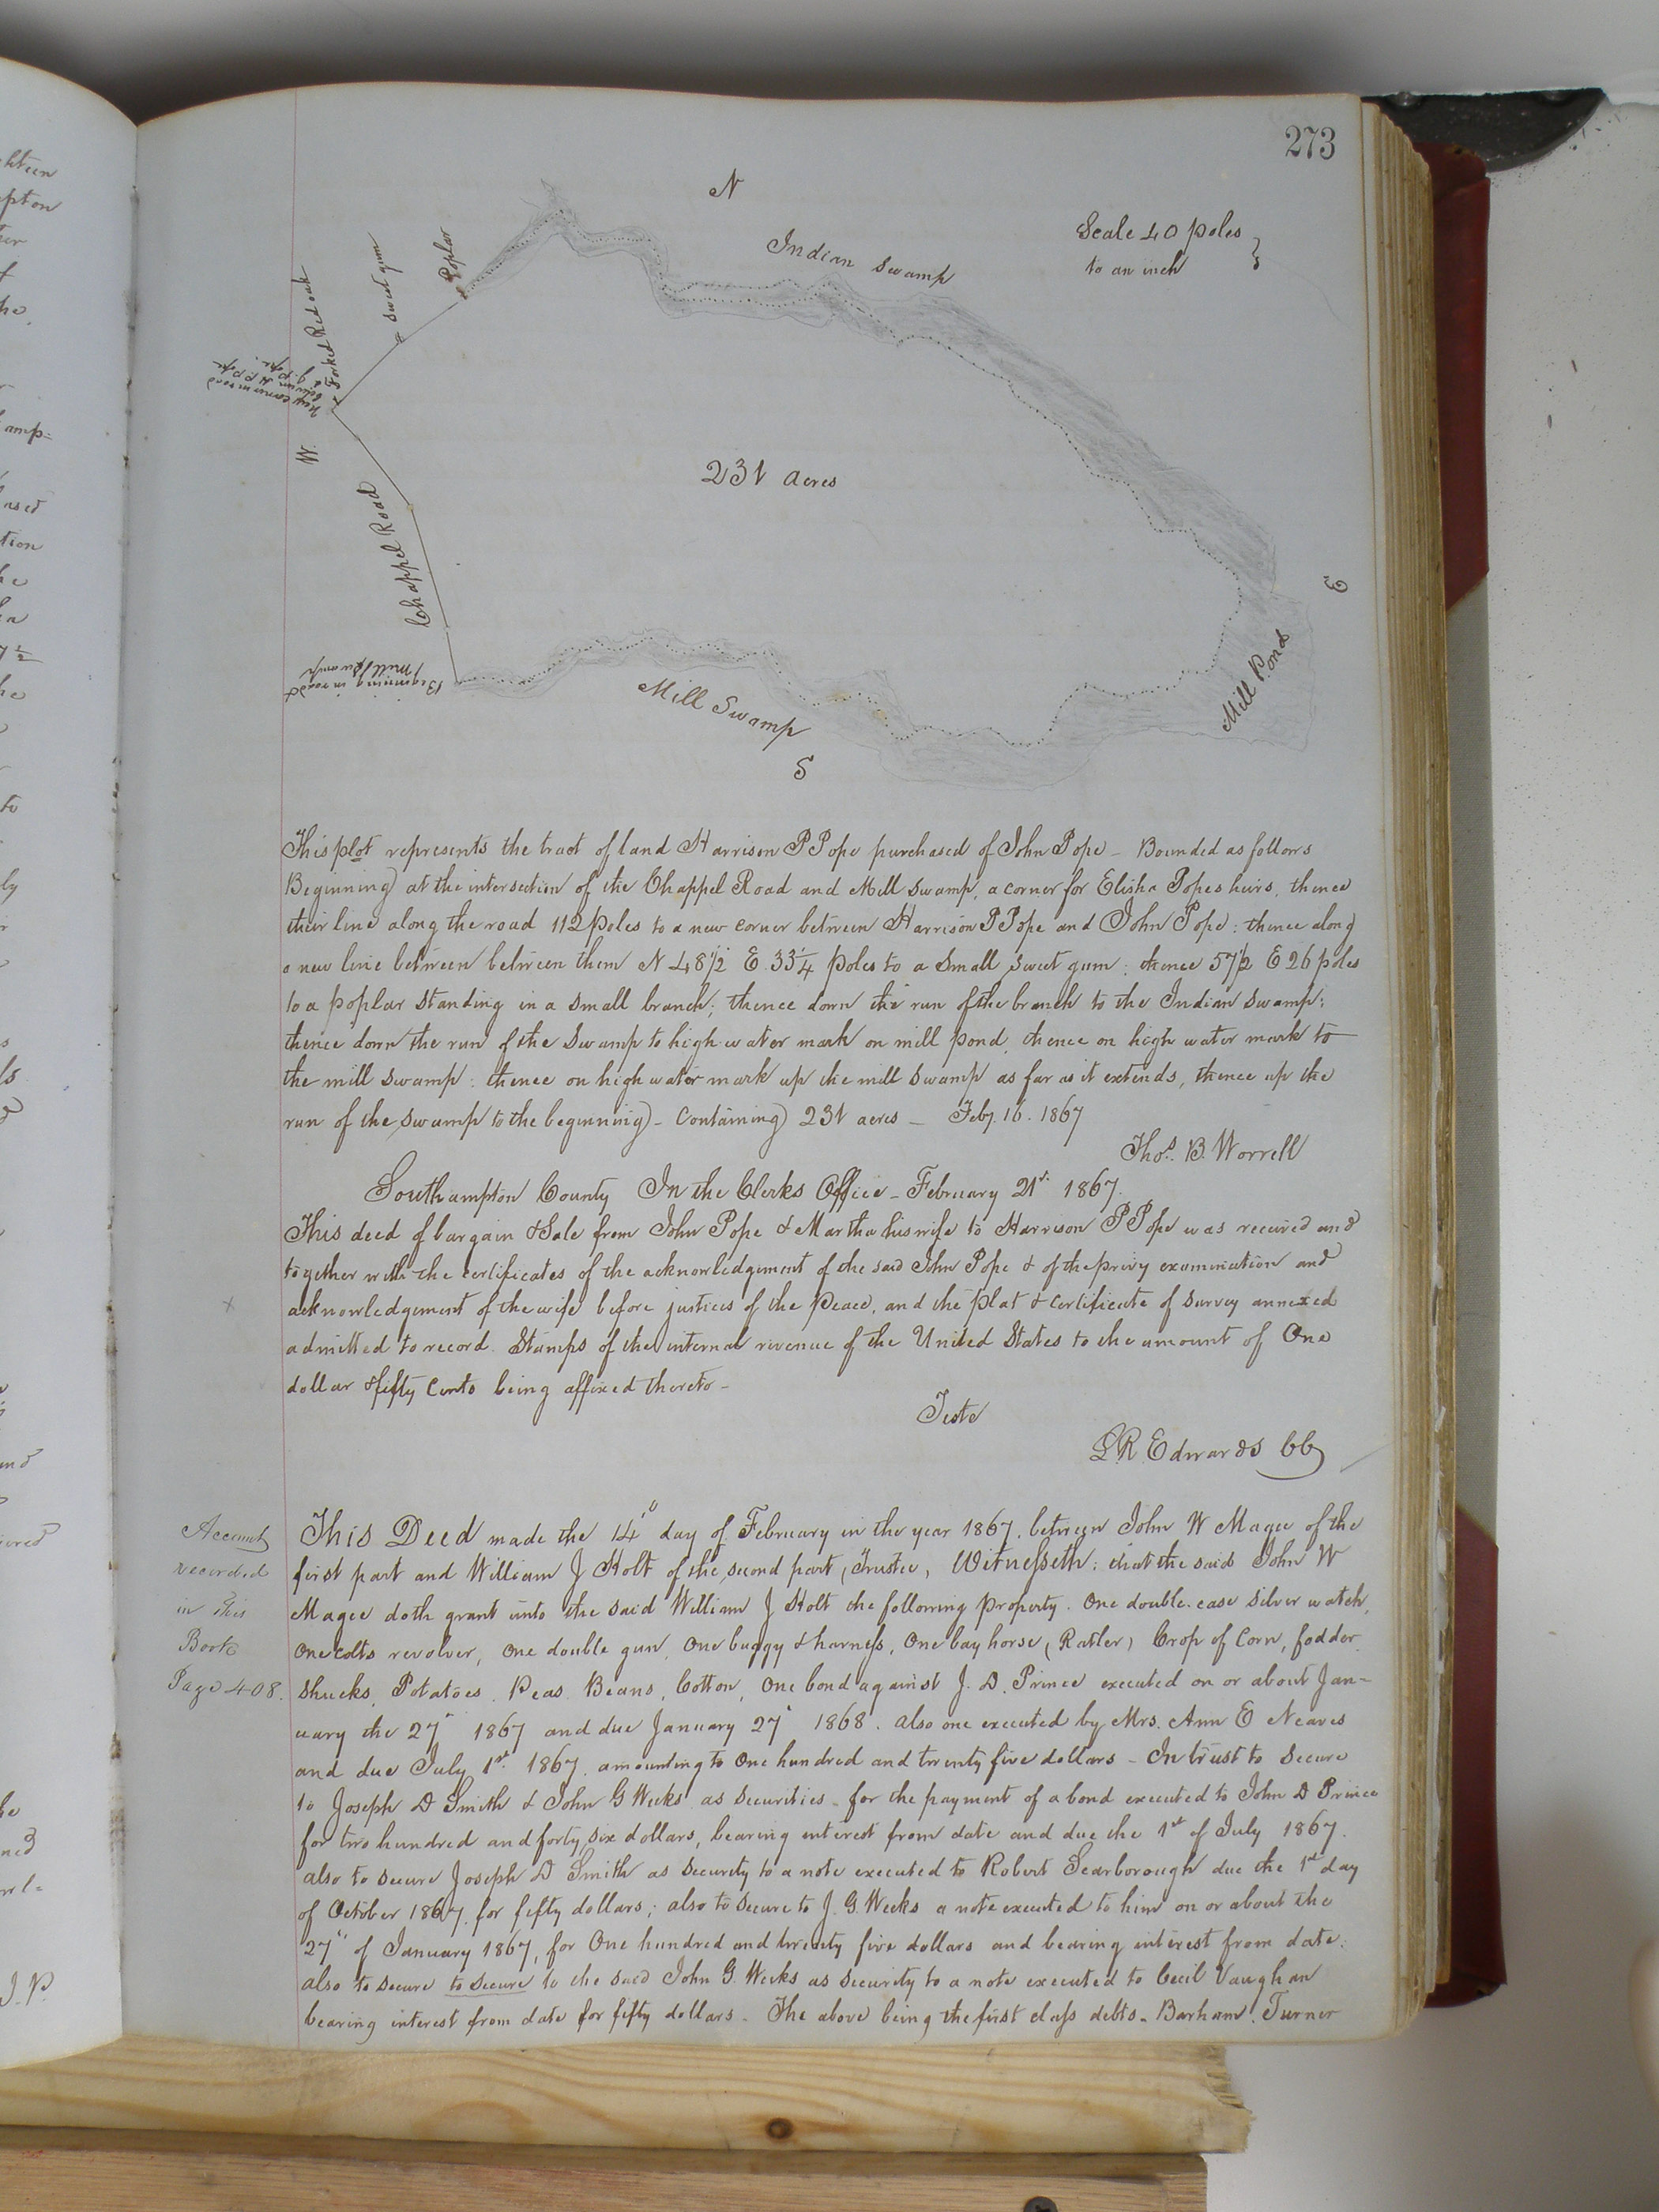 273
N
Scale 40 poles
to an inch
Indian Swamp
Poplar
Sweet gum
Forked Red oak
New corner in road
W.
231 acres
Chappel Road
E
Beginning in road
Mill Swamp
Mill Swamp
Mill Pond
S
This plot represents the tract of land Harrison P Pope purchased of John Pope - Bounded as follows
Beginning at the intersection of the Chappel Road and Mill swamp, a corner for Elisha Popes heirs, thence
their line along the road 112 Poles to a new corner between Harrison P Pope and John Pope: thence along
a new line between between them N 48 1/2 E. 33 1/4 poles to a small sweet gum; thence 57 1/2 E 26 poles
to a poplar standing in a small branch; thence down the run of the branch to the Indian swamp;
thence down the run of the swamp to high water mark on mill pond, thence on high water mark to
the mill swamp: thence on high water mark up the mill swamp as far as it extends, thence up the
run of the swamp to the beginning - Containing 231 acres - Feby. 16. 1867
Thos. B. Worrell
Southampton County In the Clerks Office - February 21st 1867.
This deed of bargain & Sale from John Pope & Martha his wife to Harrison P Pope was received and
together with the certificates of the acknowledgement of the said John Pope & of the privy examination and
acknowledgement of the wife before justices of the Peace, and the plat & certificate of survey annexed
admitted to record. Stamps of the internal revenue of the United States to the amount of One
dollar & fifty Cents being affixed thereto -
Teste
L R Edwards CC
Account
recorded
in This
Book
Page 408.
This Deed made the 14" day of February in the year 1867. between John W Magee of the
first part and William J Holt of the second part, Trustee, Witnesseth: that the said John W
Magee doth grant unto the said William J Holt the following property. One double-case silver watch,
One colts revolver, One double gun, One buggy & harness, One bay horse (Ratler) Crop of Corn, fodder
Shucks, Potatoes. Peas. Beans, Cotton, One bond against J. D. Prince executed on or about Jan-
uary the 27" 1867 and due January 27" 1868. also one executed by Mrs. Ann E Neaves
and due July 1st 1867. amounting to One hundred and twenty five dollars - In trust to secure
to Joseph D Smith & John G Weeks as securities - for the payment of a bond executed to John D Prince
for two hundred and forty six dollars, bearing interest from date and due the 1st of July 1867.
also to secure Joseph D Smith as security to a note executed to Robert Scarborough due the 1st day
of October 1867. for fifty dollars; also to secure to J. G. Weeks a note executed to him on or about the
27" of January 1867, for One hundred and twenty five dollars and bearing interest from date:
also to secure to secure to the said John G. Weeks as security to a note executed to Cecil Vaughan
bearing interest from date for fifty dollars - The above being the first class debts - Barham. Turner